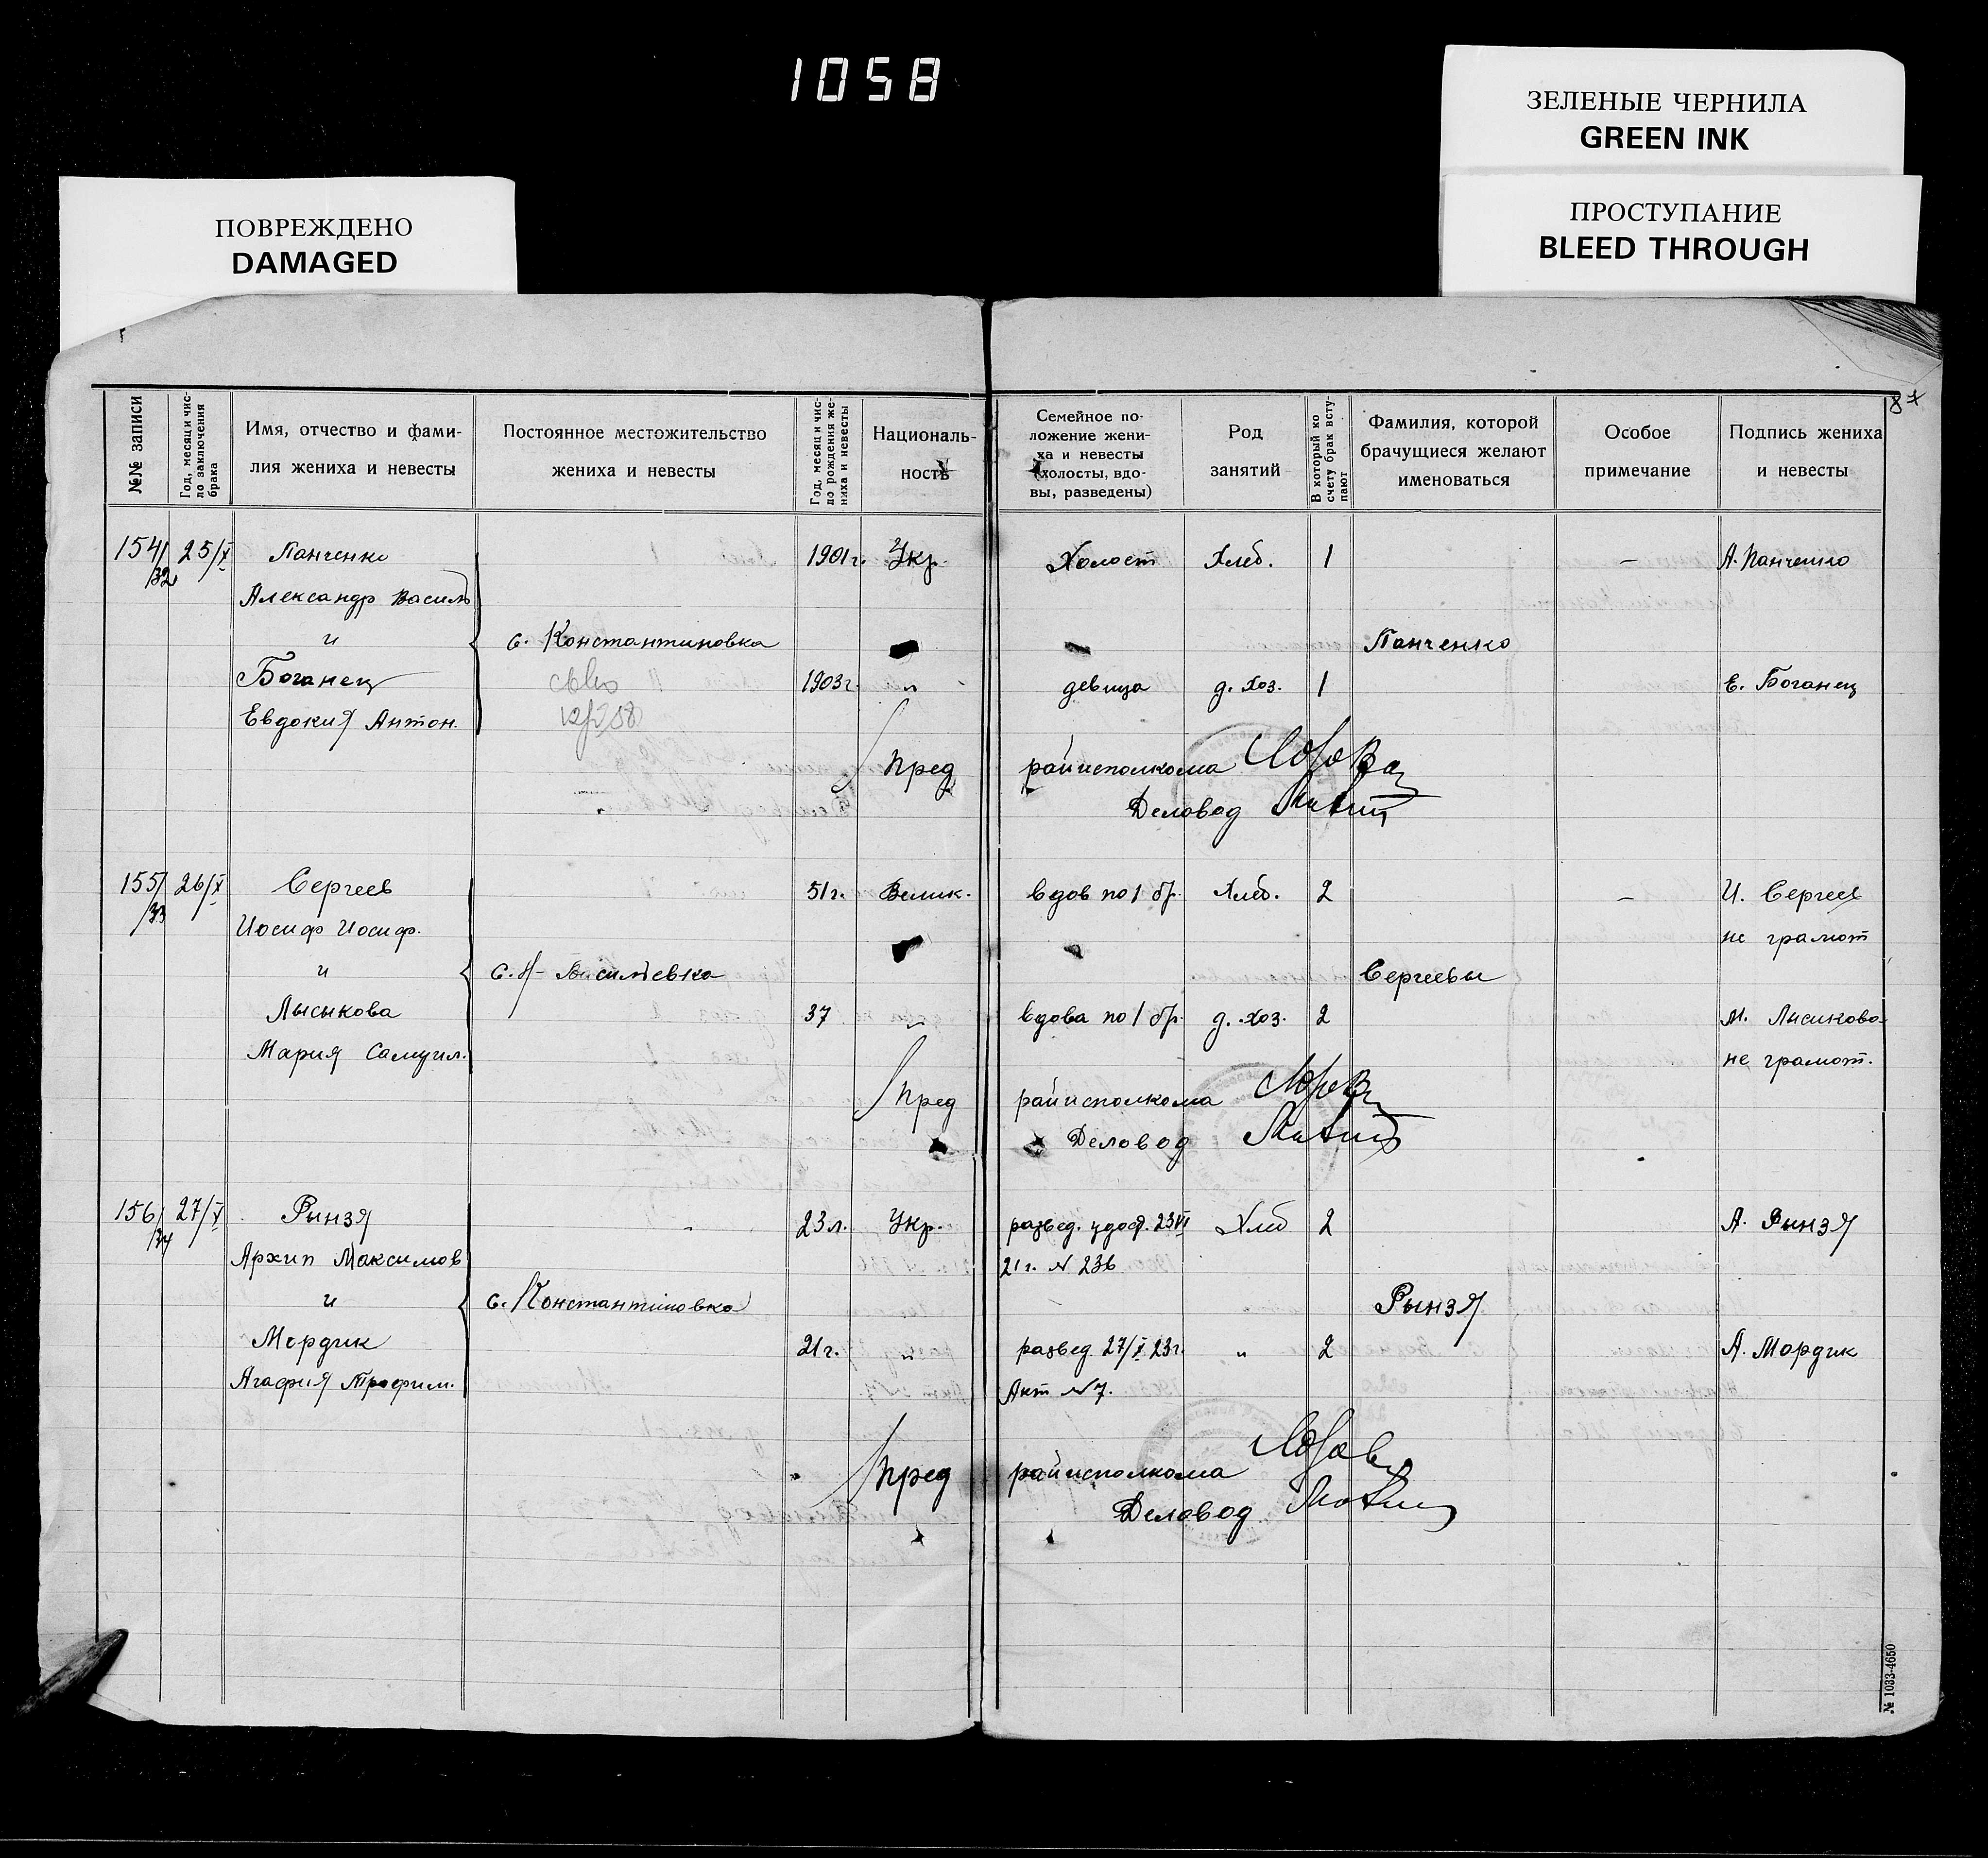 1058
ЗЕЛЕНЫЕ ЧЕРНИЛА
GREEN INK
ПРОСТУПАНИЕ
BLEED THROUGH
ПОВРЕЖДЕНО
DAMAGED
87
№№ записи
Год, месяц и чис-
ло заключения
брака
Имя, отчество и фами-
лия жениха и невесты
Постоянное местожительство
жениха и невесты
Год, месяц и чис-
ло рождения же-
ниха и невесты
Националь-
ность
Семейное по-
ложение жени-
ха и невесты
(холосты, вдо-
вы, разведены)
Род
занятий
В который по
счету брак всту-
пают
Фамилия, которой
брачущиеся желают
именоваться
Особое
примечание
Подпись жениха
и невесты
154/32 25/X Панченко 1901г. Укр. Холост Хлеб. 1 – А. Панченко
Александр Василь
и с. Константиновка Панченко
Боганец 1903г. " девица д. хоз. 1 Е. Боганец
Евдокия Антон.
Пред райисполкома
Деловод
155/33 26/X Сергеев 51г. Велик. вдов по 1 бр. Хлеб. 2 – И. Сергеев
Иосиф Иосиф. не грамот
и с. Н-Васильевка Сергеевы
Лысыкова 37 " вдова по 1 бр. д. хоз. 2 М. Лысикова
Мария Самуил. не грамот.
Пред райисполкома
Деловод
156/34 27/X Рынзя 23л. Укр. развед. удост. 23/VI Хлеб 2 А. Рынзя
Архип Максимов 21г. N 236
и с. Константиновка Рынзя
Мордик 21г. " развед. 27/X 23г. " 2 А. Мордик
Агафия Трофим. Акт N 7.
Пред райисполкома
Деловод
№ 1033-4650